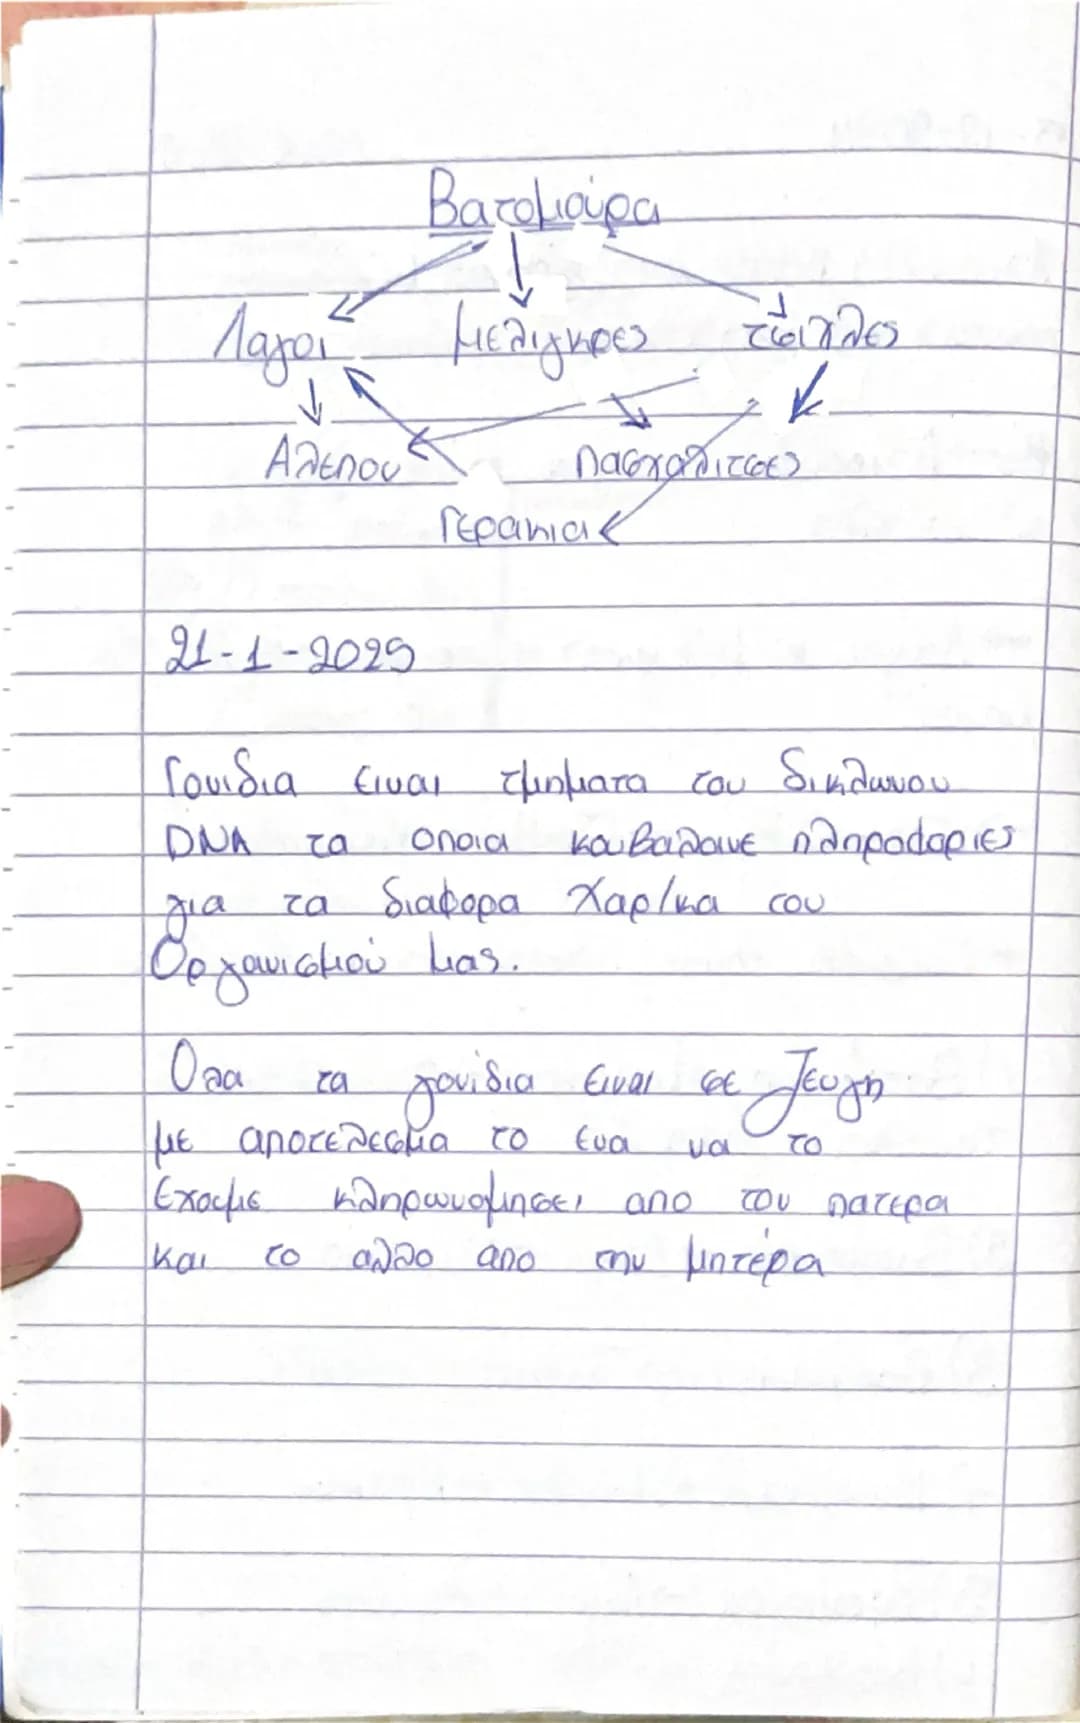 Βατομούρα
Λαγοι μελιγκρες τσιχλες
Αλεπου πασχαλιτσες
Γερακια
21-1-2025
Γονιδια ειναι τμηματα του δικλωνου
DNA τα οποια κουβαλανε πληροφοριες
για τα διαφορα χαρ/κα του
Οργανισμού μας.
Ολα τα γονίδια ειναι σε Ζευγη
με αποτελεσμα το ενα να το
εχουμε κληρωνομησει απο τον πατερα
και το αλλο απο την μητέρα